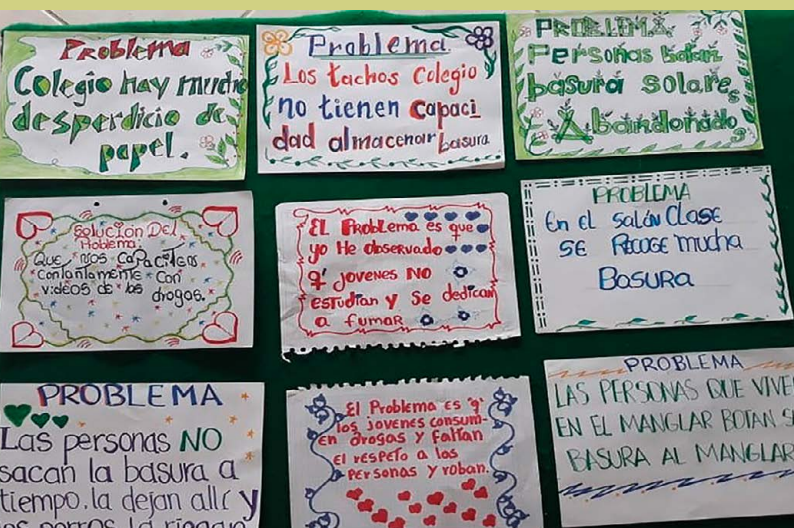 Problema
Colegio hay mucho
desperdicio de
papel.
Problema
Los tachos Colegio
no tienen capaci
dad almacenar basura
PROBLEMA
Personas botan
basura solares
Abandonado
Solución Del
Problema:
Que nos capaciten
Contantamente con
videos de las
drogas.
EL Problema es que
yo He observado
q' jovenes NO
estudian y se dedican
a fumar
PROBLEMA
En el salón Clase
SE RECOGE mucha
Basura
PROBLEMA
Las personas NO
sacan la basura a
tiempo, la dejan allí y
los perros la riegan
El Problema es "q'
los jovenes consum-
en drogas y faltan
el respeto a las
personas y roban.
PROBLEMA
LAS PERSONAS QUE VIVE
EN EL MANGLAR BOTAN S
BASURA AL MANGLAR